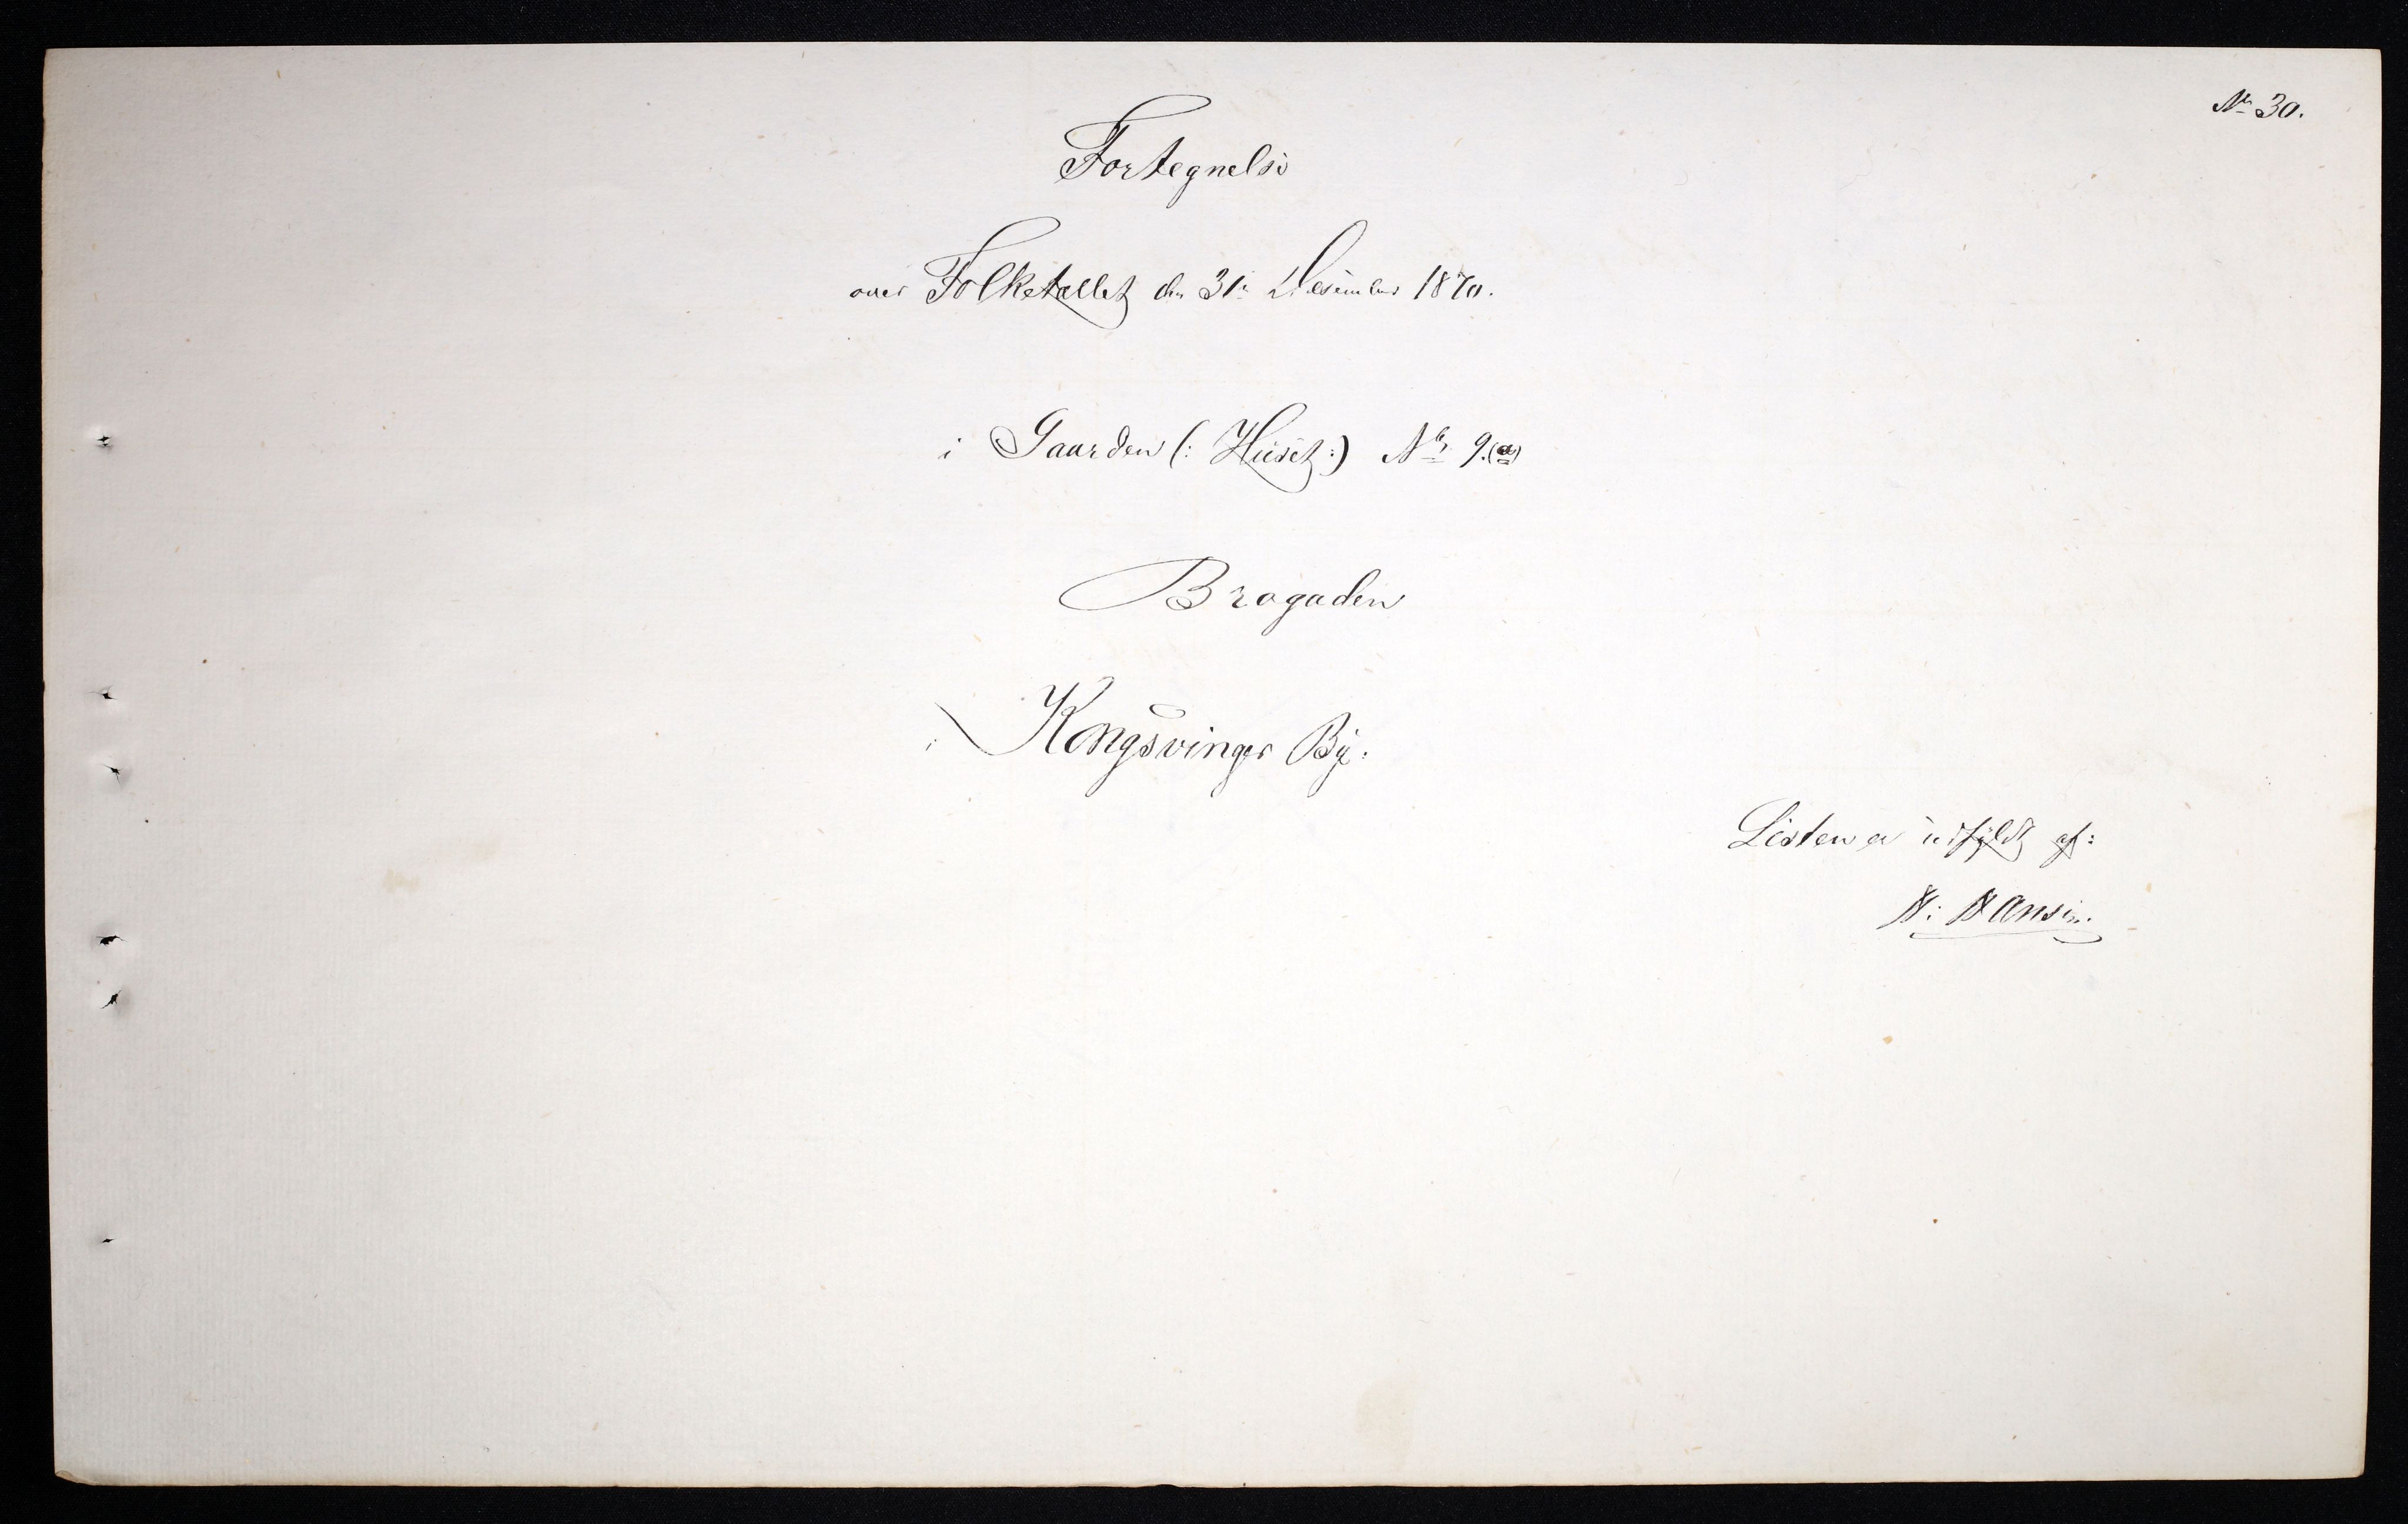 No 30.
Fortegnelse
over Folketallet den 31te Desember 1870.
i Gaarden (: Huset :) No 9.(a)
Brogaden
i Kongsvinger By.
Listen er udfyldt af:
H. Hansen.